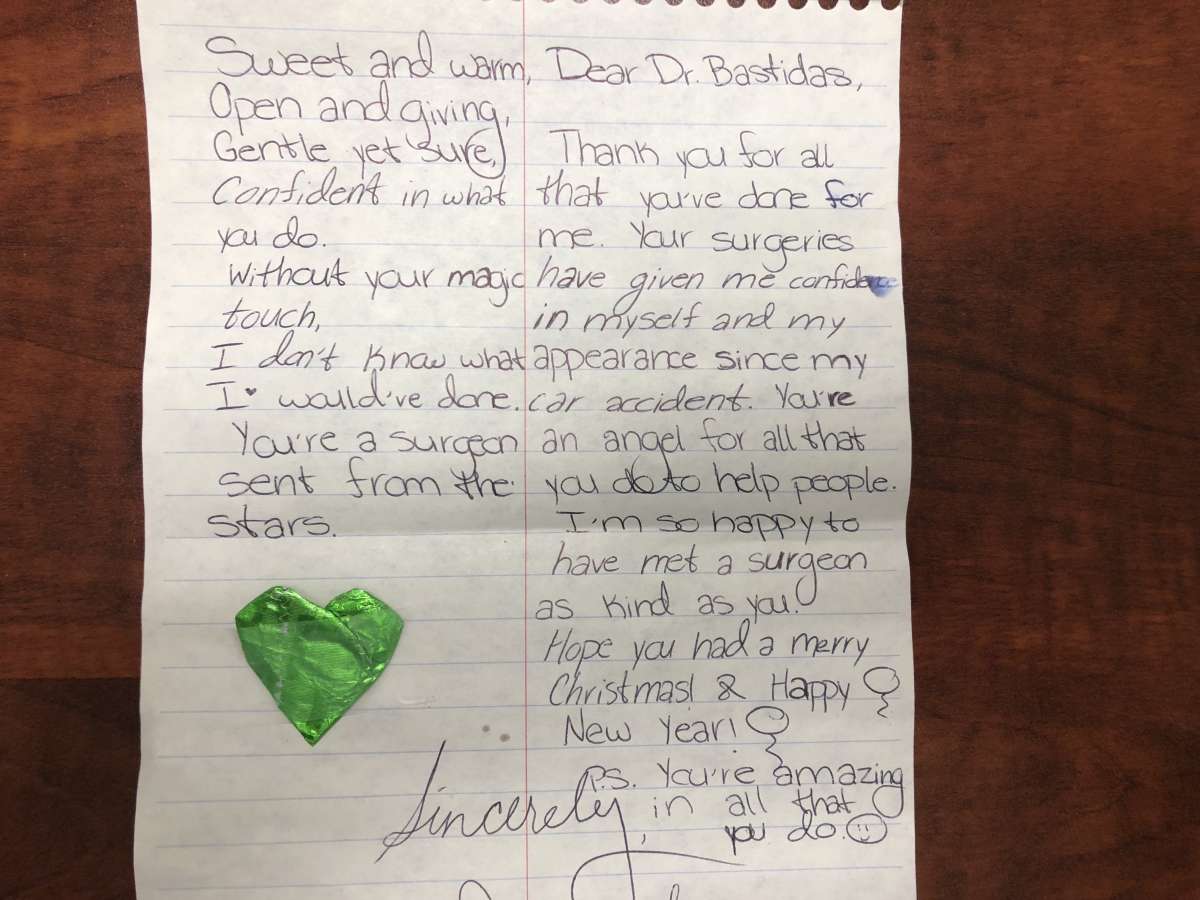 Sweet and warm,
Open and giving,
Gentle yet sure,
Confident in what
you do.
Without your magic
touch,
I don't know what
I would've done.
You're a surgeon
sent from the
stars.
Dear Dr. Bastidas,
Thank you for all
that you've done for
me. Your surgeries
have given me confidence
in myself and my
appearance since my
car accident. You're
an angel for all that
you do to help people.
I'm so happy to
have met a surgeon
as kind as you!
Hope you had a merry
Christmas! & Happy
New Year!
P.S. You're amazing
in all that
you do.
Sincerely,